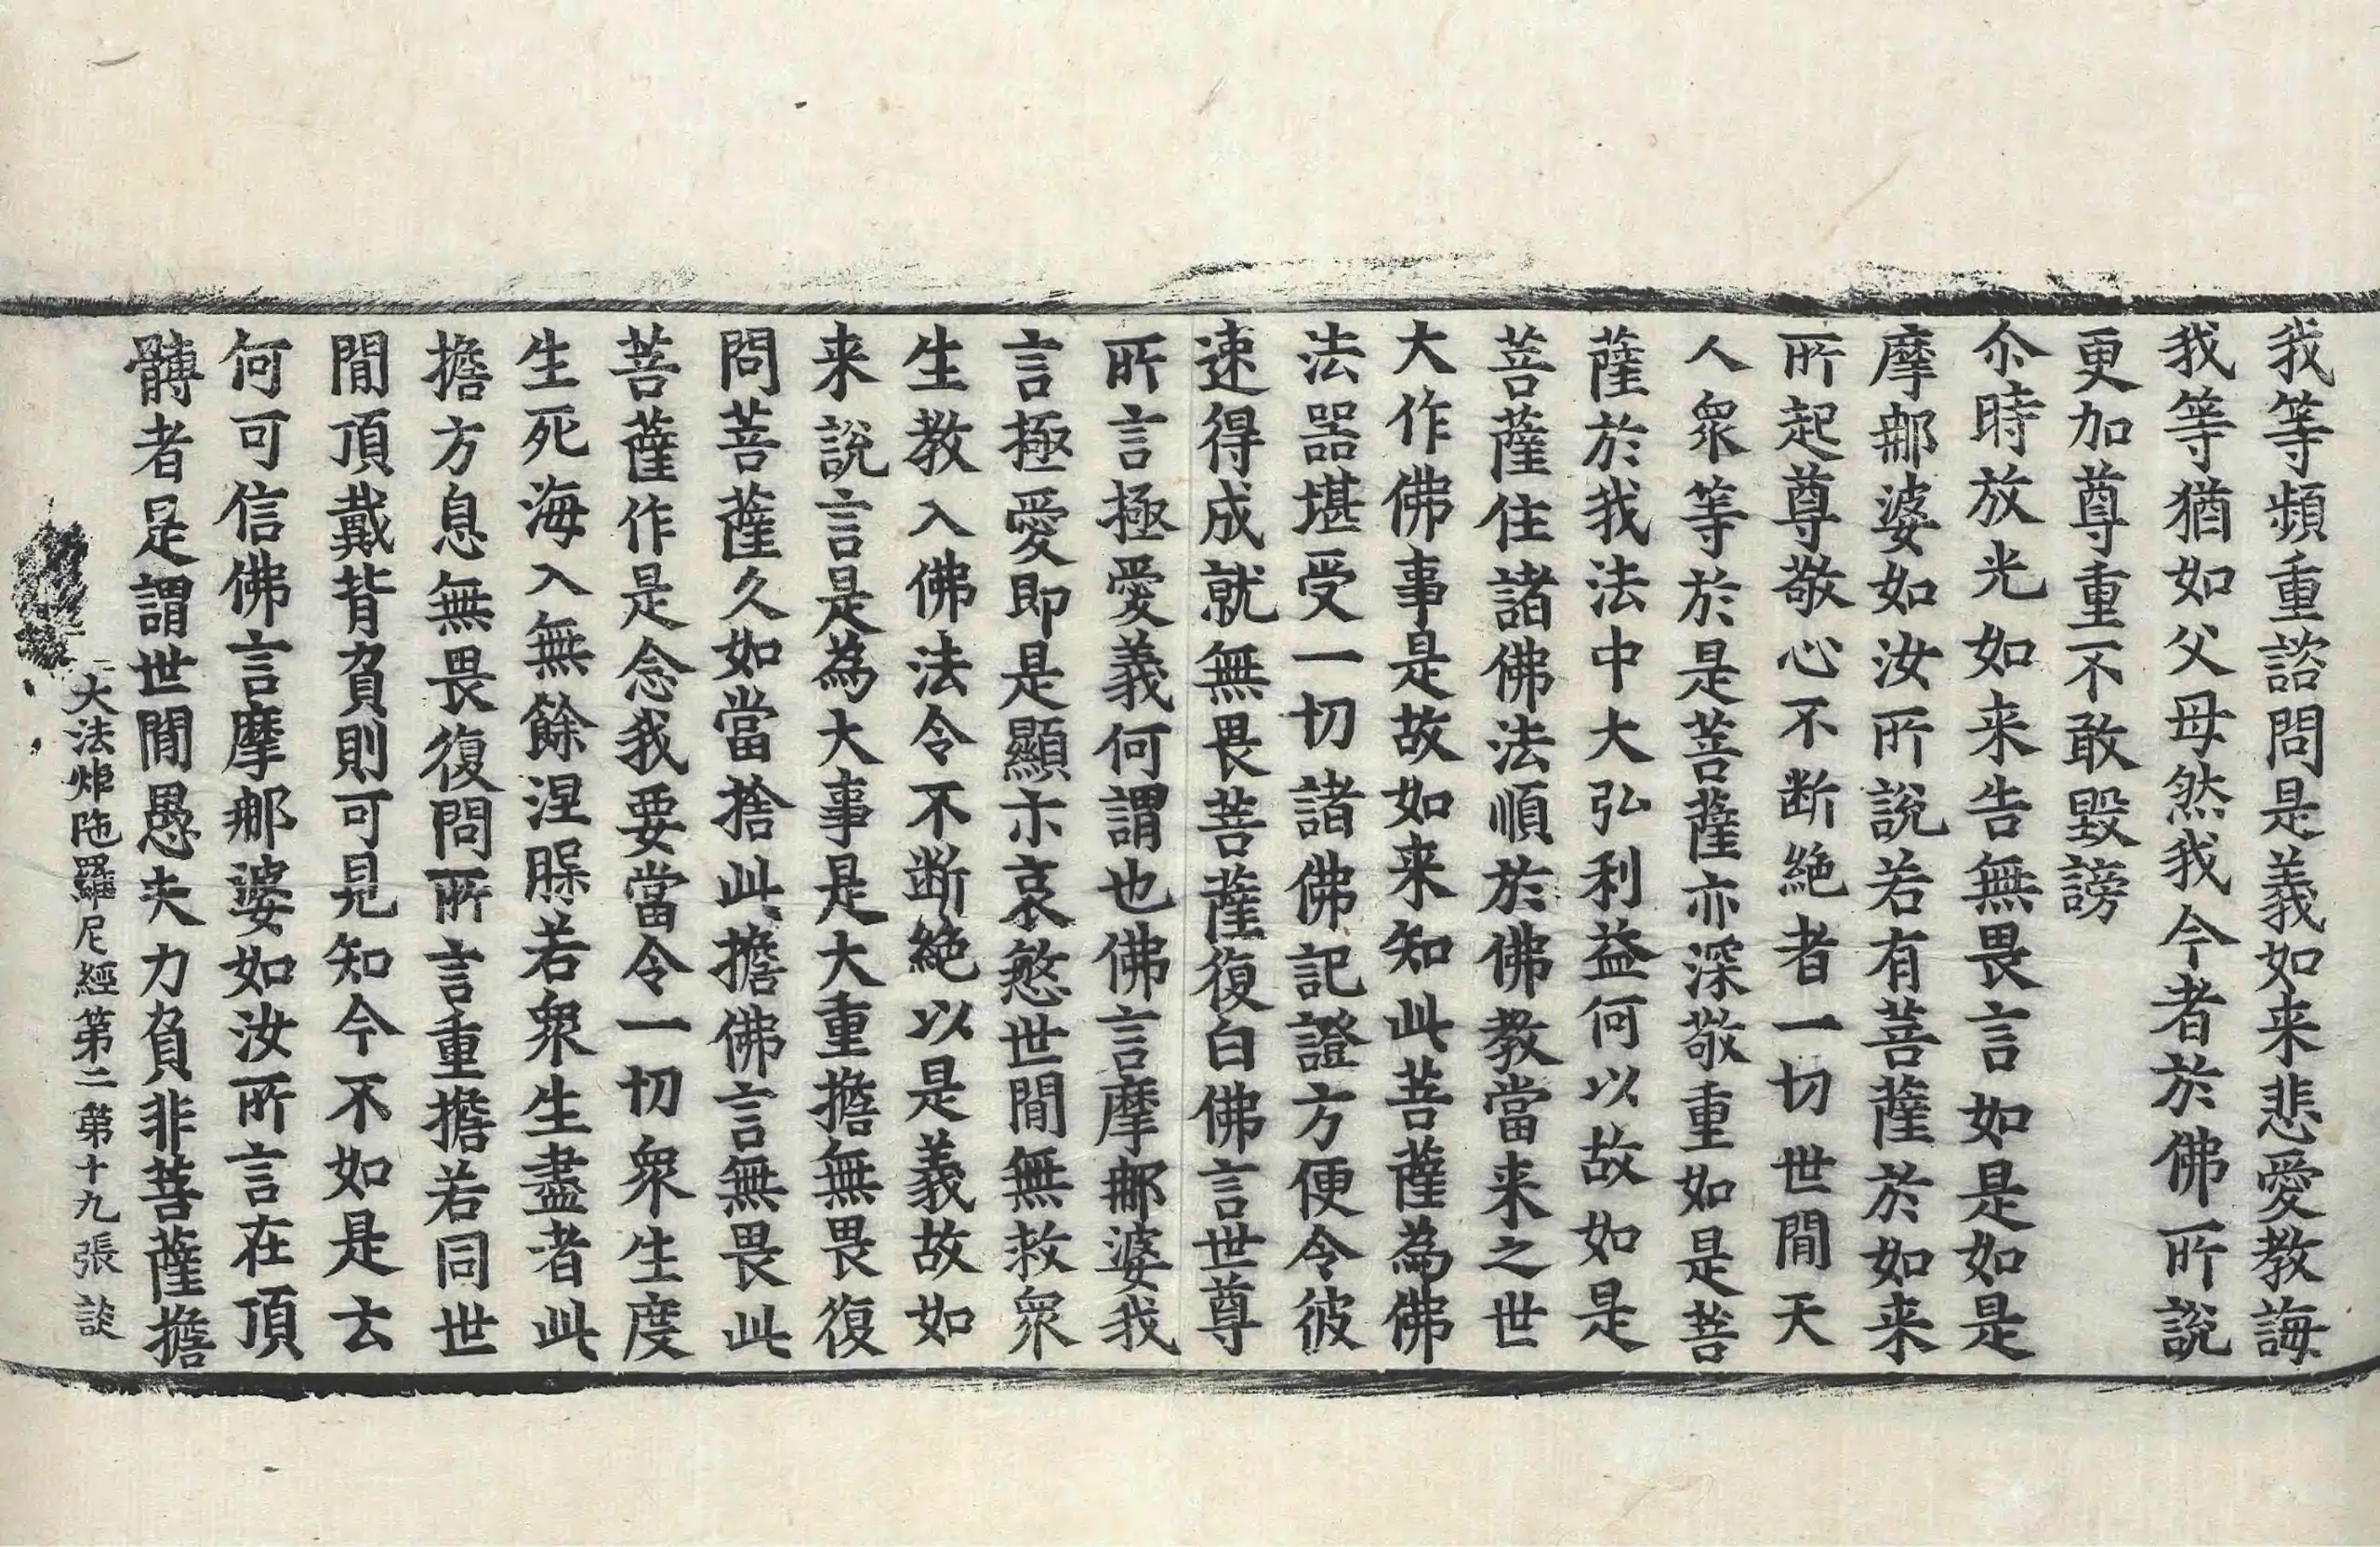 我等頻重諮問是義如来悲愛教誨
我等猶如父母然我今者於佛所說
更加尊重不敢毀謗
尒時放光如来告無畏言如是如是
摩𨙻婆如汝所說若有菩薩於如来
所起尊敬心不断絶者一切世閒天
人衆等於是菩薩亦深敬重如是菩
薩於我法中大弘利益何以故如是
菩薩住諸佛法順於佛教當来之世
大作佛事是故如来知此菩薩為佛
法噐堪受一切諸佛記證方便令彼
速得成就無畏菩薩復白佛言世尊
所言極愛義何謂也佛言摩𨙻婆我
言極愛即是顯示哀慜世閒無救衆
生教入佛法令不断絶以是義故如
来說言是為大事是大重擔無畏復
問菩薩久如當捨此擔佛言無畏此
菩薩作是念我要當令一切衆生度
生死海入無餘涅槃若衆生盡者此
擔方息無畏復問所言重擔若同世
閒頂戴背負則可見知今不如是云
何可信佛言摩𨙻婆如汝所言在頂
髆者是謂世閒愚夫力負非菩薩擔
大法炬陁羅尼經第二 第十九張 談